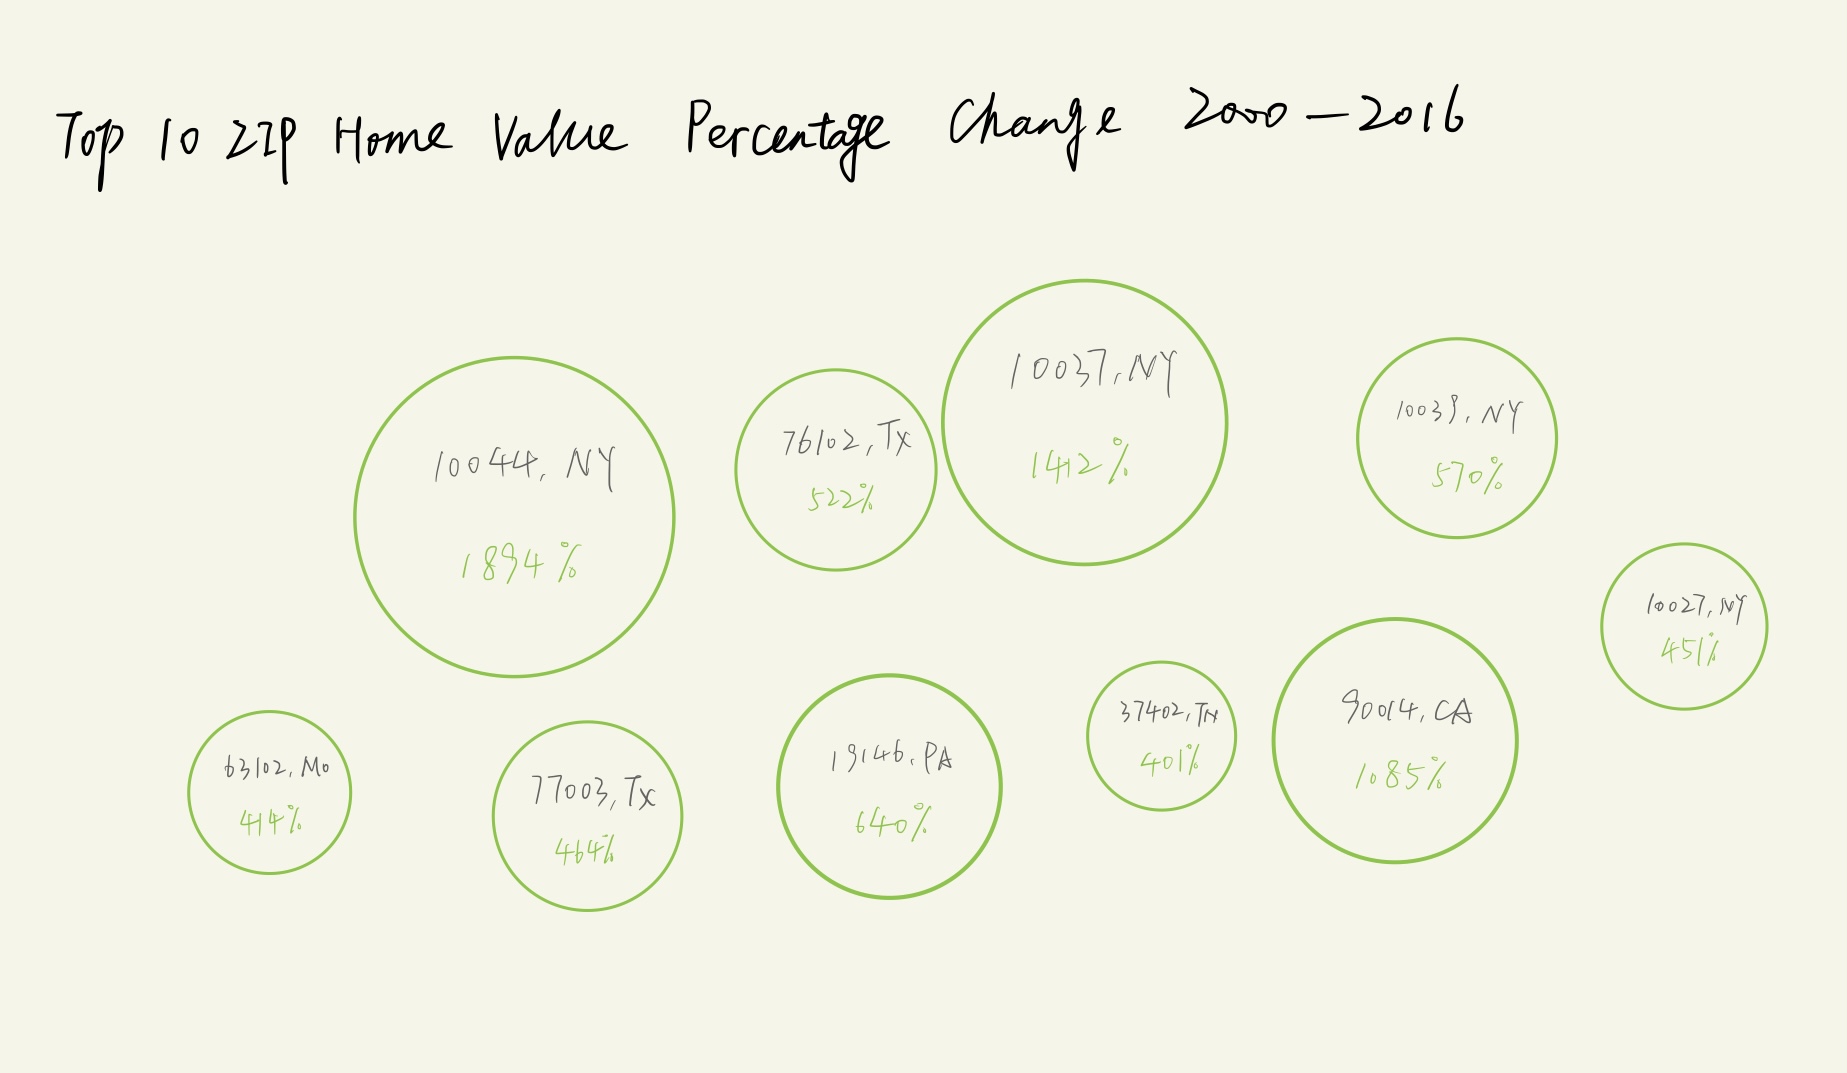 Top 10 ZIP Home Value Percentage Change 2000-2016
10044, NY
1894%
76102, TX
522%
10037, NY
1412%
10039, NY
570%
10027, NY
451%
63102, MO
414%
77003, TX
464%
19146, PA
640%
37402, TN
401%
90014, CA
1085%